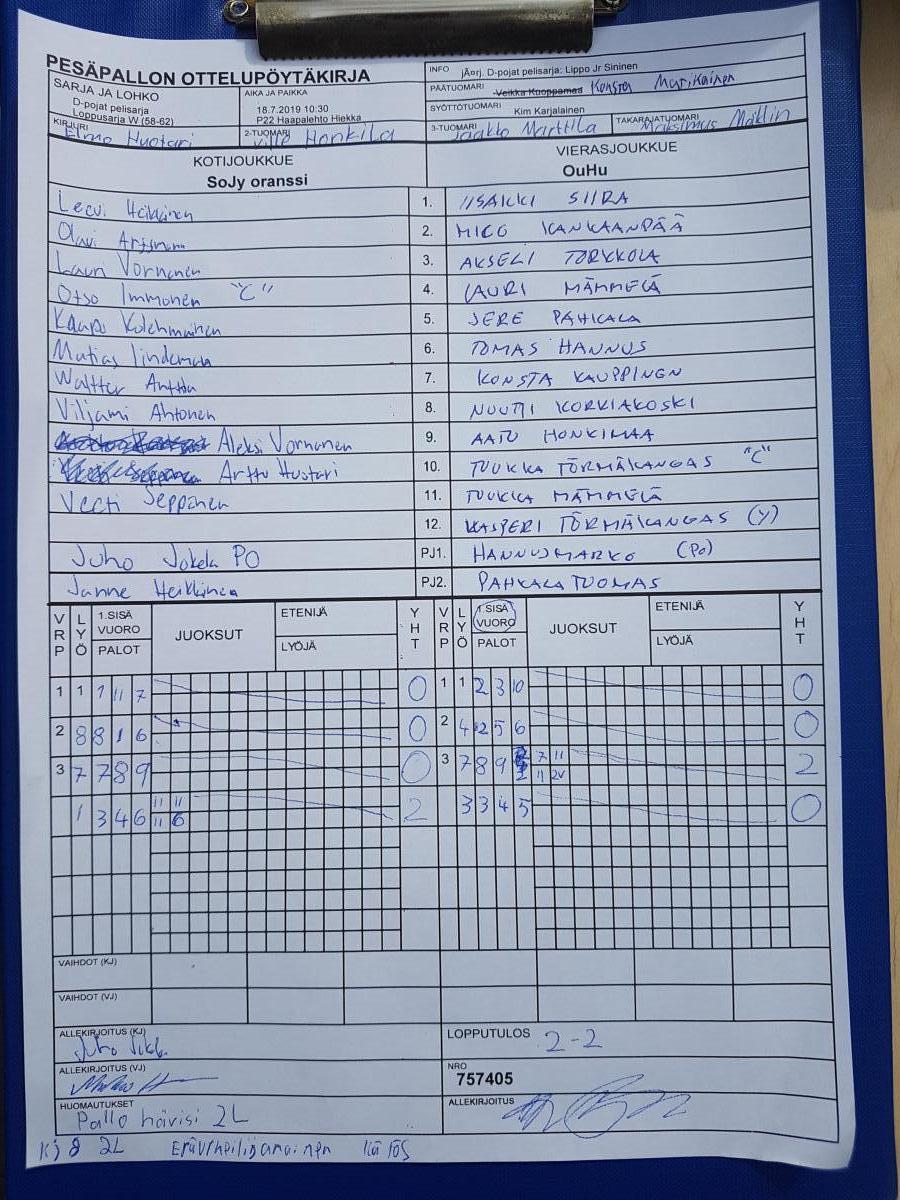 PESÄPALLON OTTELUPÖYTÄKIRJA
SARJA JA LOHKO
D-pojat pelisarja
Loppusarja W (58-62)
AIKA JA PAIKKA
18.7.2019 10:30
P22 Haapalehto Hiekka
INFO jÃ¤rj. D-pojat pelisarja: Lippo Jr Sininen
PÄÄTUOMARI Veikka Kuoppamaa Konsta Marikainen
SYÖTTÖTUOMARI Kim Karjalainen
KIRJURI Elmo Huotari
2-TUOMARI Ville Honkila
3-TUOMARI Jaakko Marttila
TAKARAJATUOMARI Maksimus Mäklin
KOTIJOUKKUE
SoJy oranssi
VIERASJOUKKUE
OuHu
Leevi Heikkinen 1. IISAKKI SIIRA
Olavi 2. MICO KANKAANPÄÄ
Lauri Vornanen 3. AKSELI TORKKOLA
Otso Immonen "C" 4. LAURI MÄMMELÄ
Kaapo Kolehmainen 5. JERE PAHKALA
Matias Lindeman 6. TOMAS HANNUS
Waltter Anttila 7. KONSTA KAUPPINEN
Viljami Ahtonen 8. NUUTTI KORKIAKOSKI
Aleksi Vornanen 9. AATU HONKIMAA
Arttu Huotari 10. TUUKKA TÖRMÄKANGAS "C"
Veeti Seppänen 11. TUUKKA MÄMMELÄ
12. KASPERI TÖRMÄKANGAS (Y)
Juho Jokela PO PJ1. HANNUS MARKO (PO)
Janne Heikkinen PJ2. PAHKALA TUOMAS
VRP LYÖ 1.SISÄ VUORO PALOT JUOKSUT ETENIJÄ LYÖJÄ YHT VRP LYÖ 1.SISÄ VUORO PALOT JUOKSUT ETENIJÄ LYÖJÄ YHT
1 1 1 11 7 0 1 1 2 3 10 0
2 8 8 1 6 0 2 4 2 5 6 0
3 7 7 8 9 0 3 7 8 9 2 7 11 2
11 2V
1 3 4 6 11 11 2 3 3 4 5 0
11 6
VAIHDOT (KJ)
VAIHDOT (VJ)
ALLEKIRJOITUS (KJ)
LOPPUTULOS 2-2
ALLEKIRJOITUS (VJ)
NRO
757405
HUOMAUTUKSET
Pallo hävisi 2L
ALLEKIRJOITUS
KJ 8 2L